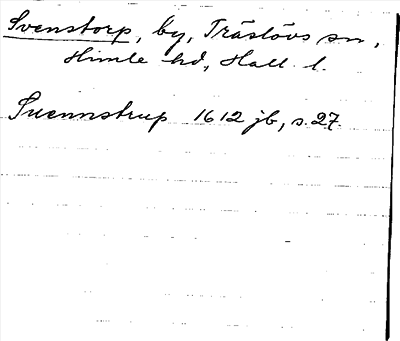 Svenstorp, by, Träslövs sn,
Himle hd, Hall. l.
Suennstrup 1612 jb, s. 27.